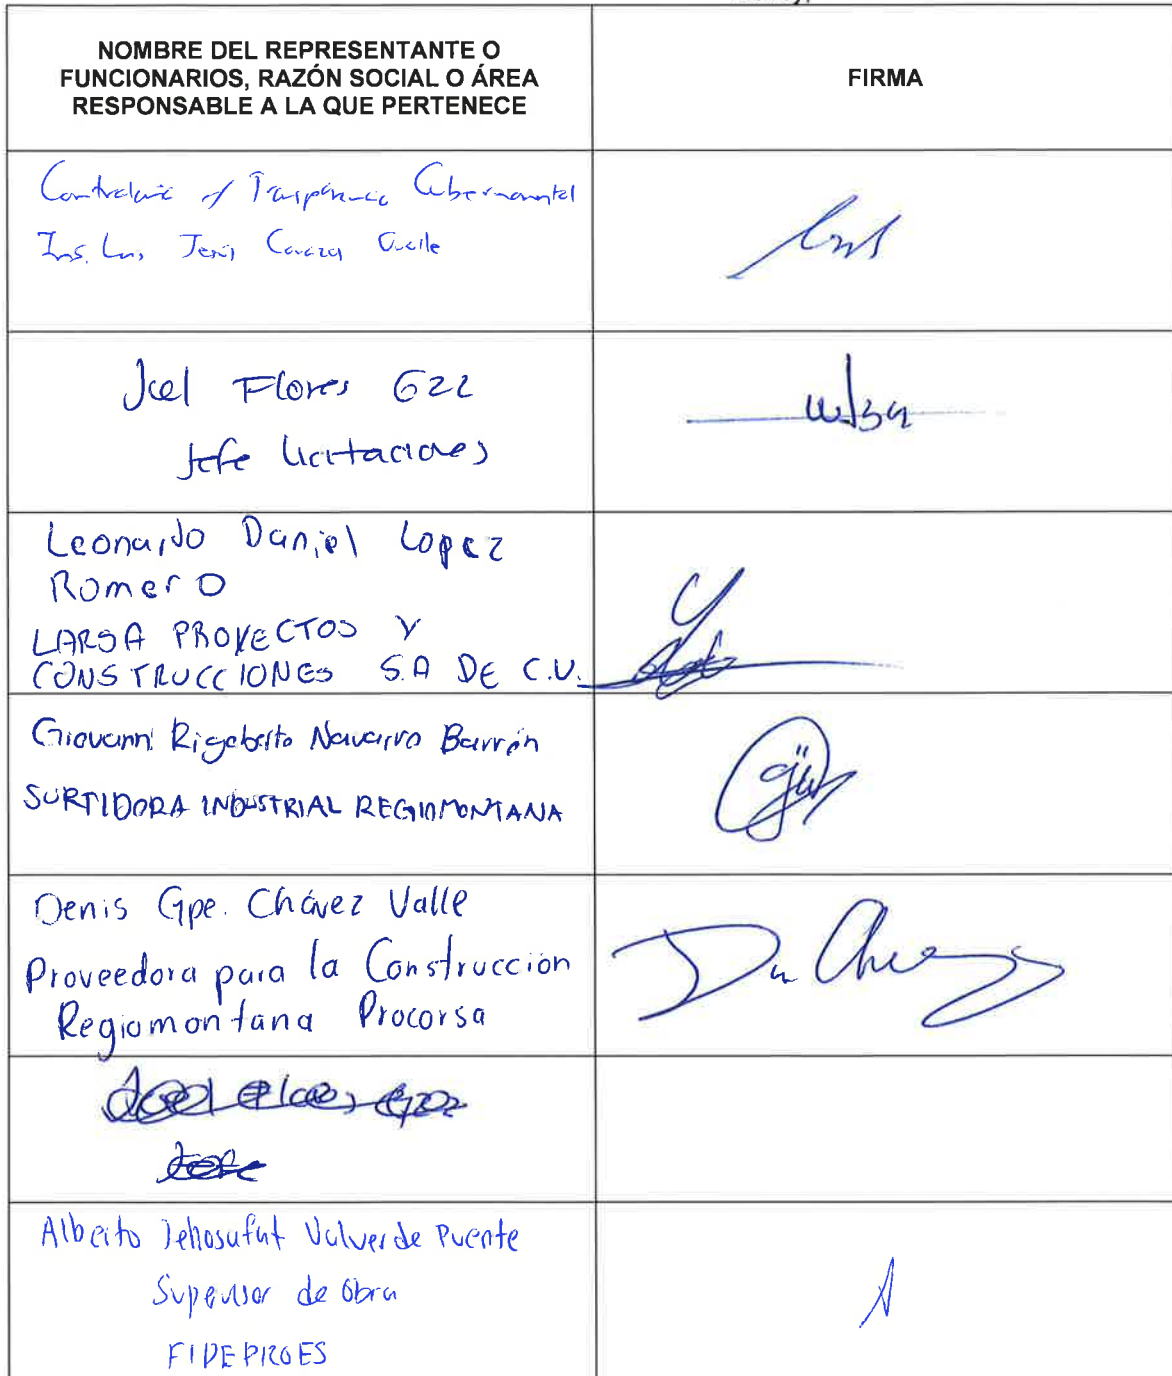 NOMBRE DEL REPRESENTANTE O
FUNCIONARIOS, RAZÓN SOCIAL O ÁREA
RESPONSABLE A LA QUE PERTENECE
FIRMA
Gubernamental
Jesús
Joel Flores G22
Jefe licitaciones
Leonardo Daniel Lopez
Romero
LARSA PROYECTOS Y
CONSTRUCCIONES S.A DE C.V.
Giovanni Rigoberto Navarro Barrón
SURTIDORA INDUSTRIAL REGIOMONTANA
Denis Gpe. Chávez Valle
Proveedora para la Construcción
Regiomontana Procorsa
Alberto Jehosafat Valverde Puente
Supervisor de Obra
FIDEPROES